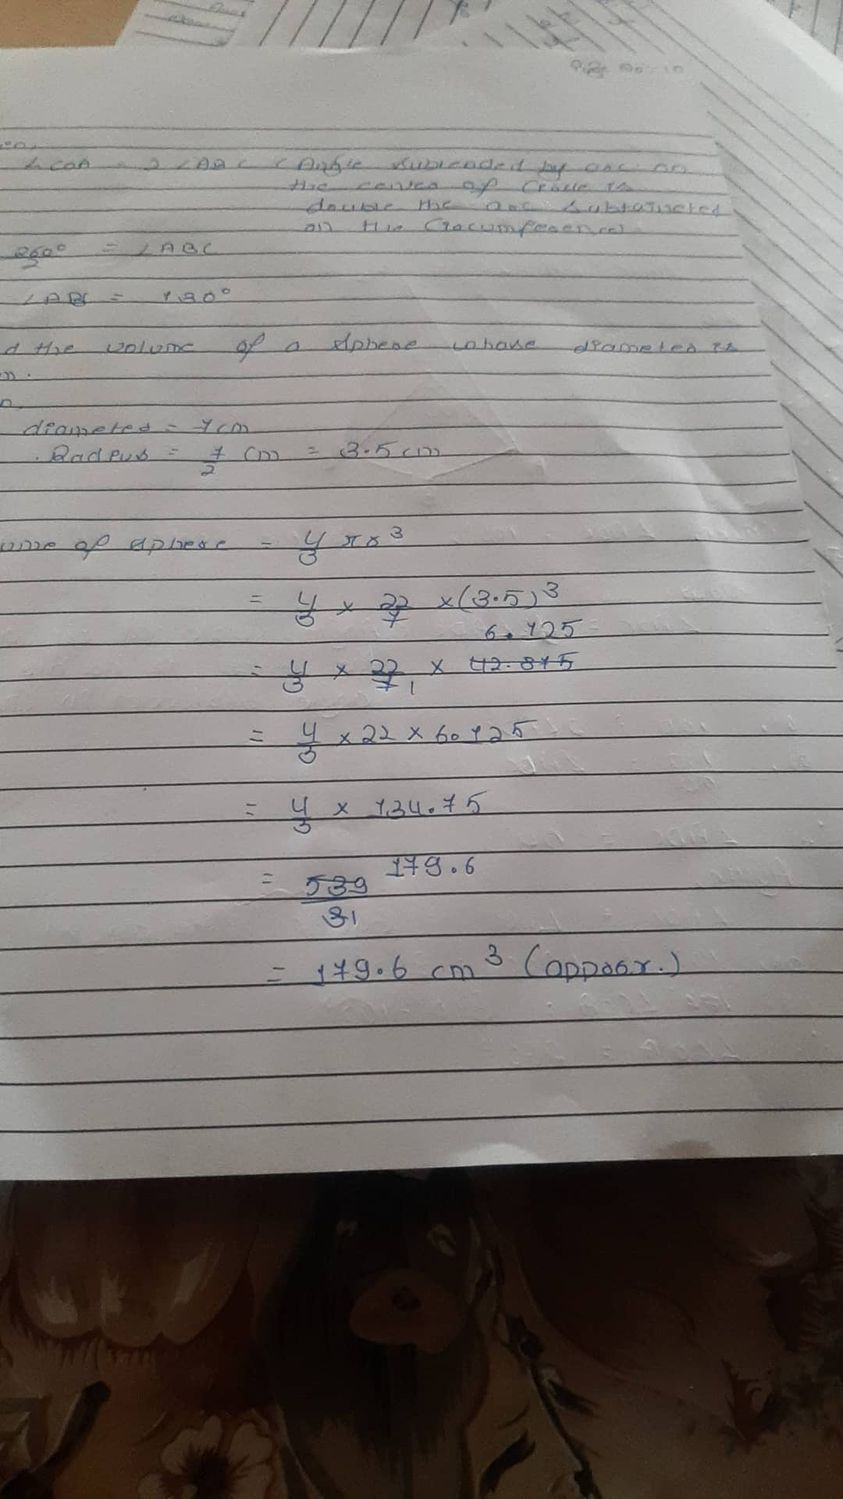 ∠COA = 2 ∠ABC (Angle subtended by arc on
the center of Circle is
double the arc subtainded
on the Circumference)
260°/2 = ∠ABC
∠ABC = 130°
d the volume of a sphere whose diameter is
diameter = 7 cm
Radius = 7/2 cm = 3.5 cm
ume of sphere = 4/3 πr³
= 4/3 × 22/7 × (3.5)³
6.125
= 4/3 × 22/7 1 × 42.875
= 4/3 × 22 × 6.125
= 4/3 × 134.75
= 539/3 1 179.6
= 179.6 cm³ (approx.)